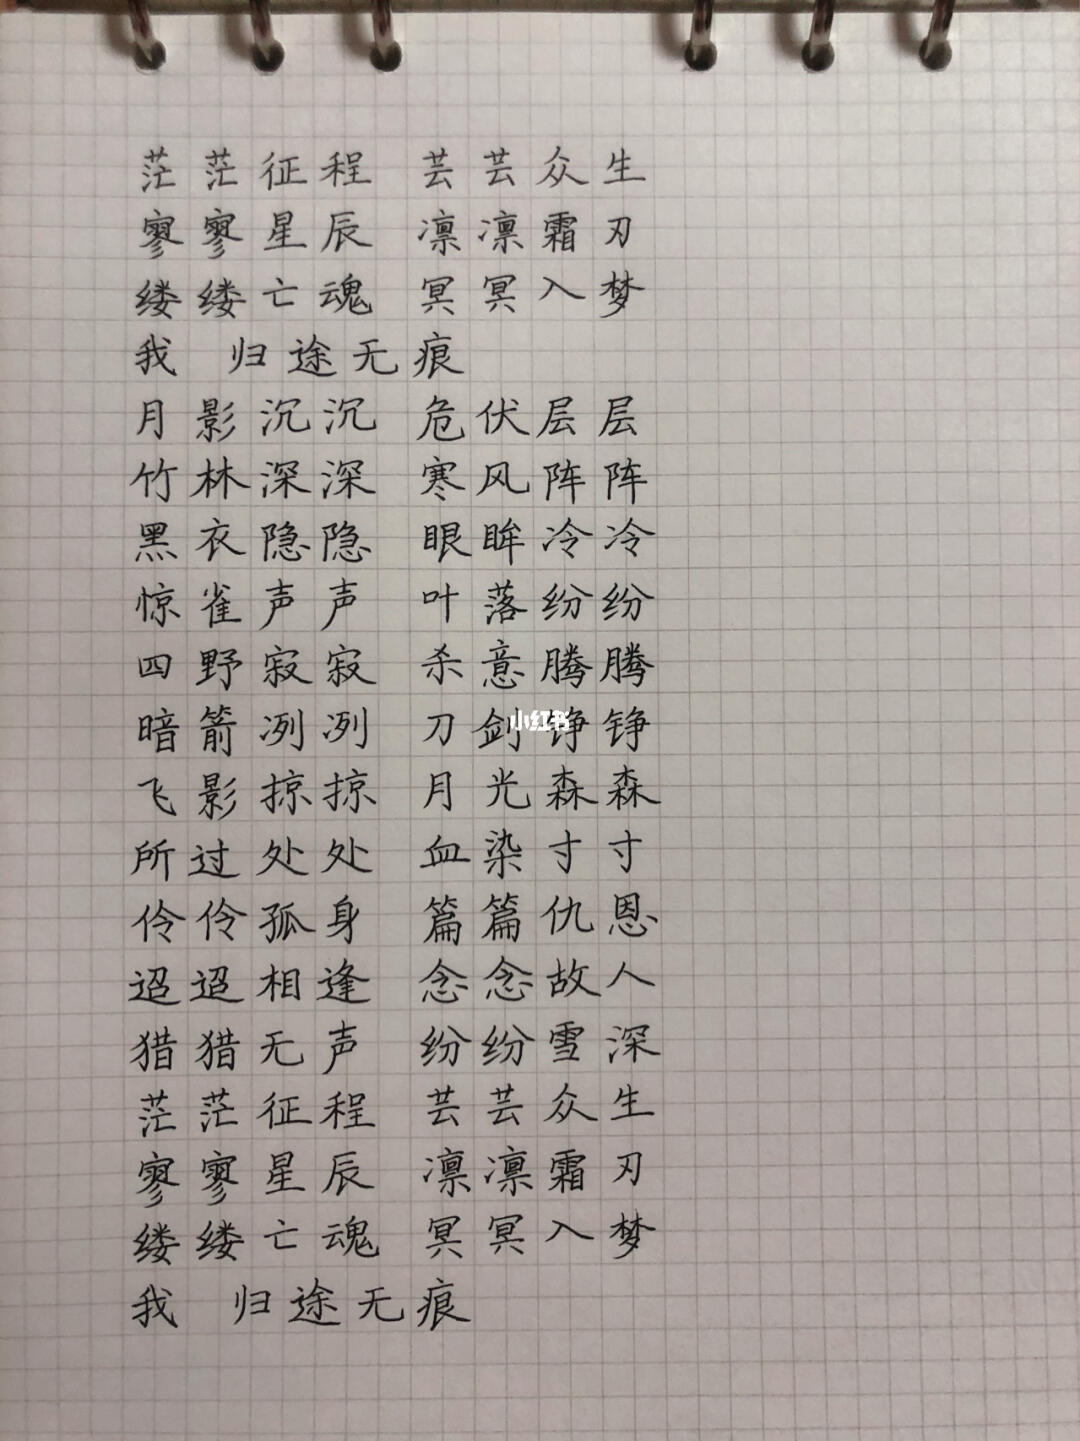 茫茫征程 芸芸众生
寥寥星辰 凛凛霜刃
缕缕亡魂 冥冥入梦
我 归途无痕
月影沉沉 危伏层层
竹林深深 寒风阵阵
黑衣隐隐 眼眸冷冷
惊雀声声 叶落纷纷
四野寂寂 杀意腾腾
暗箭冽冽 刀剑铮铮
小红书
飞影掠掠 月光森森
所过处处 血染寸寸
伶伶孤身 篇篇仇恩
迢迢相逢 念念故人
猎猎无声 纷纷雪深
茫茫征程 芸芸众生
寥寥星辰 凛凛霜刃
缕缕亡魂 冥冥入梦
我 归途无痕